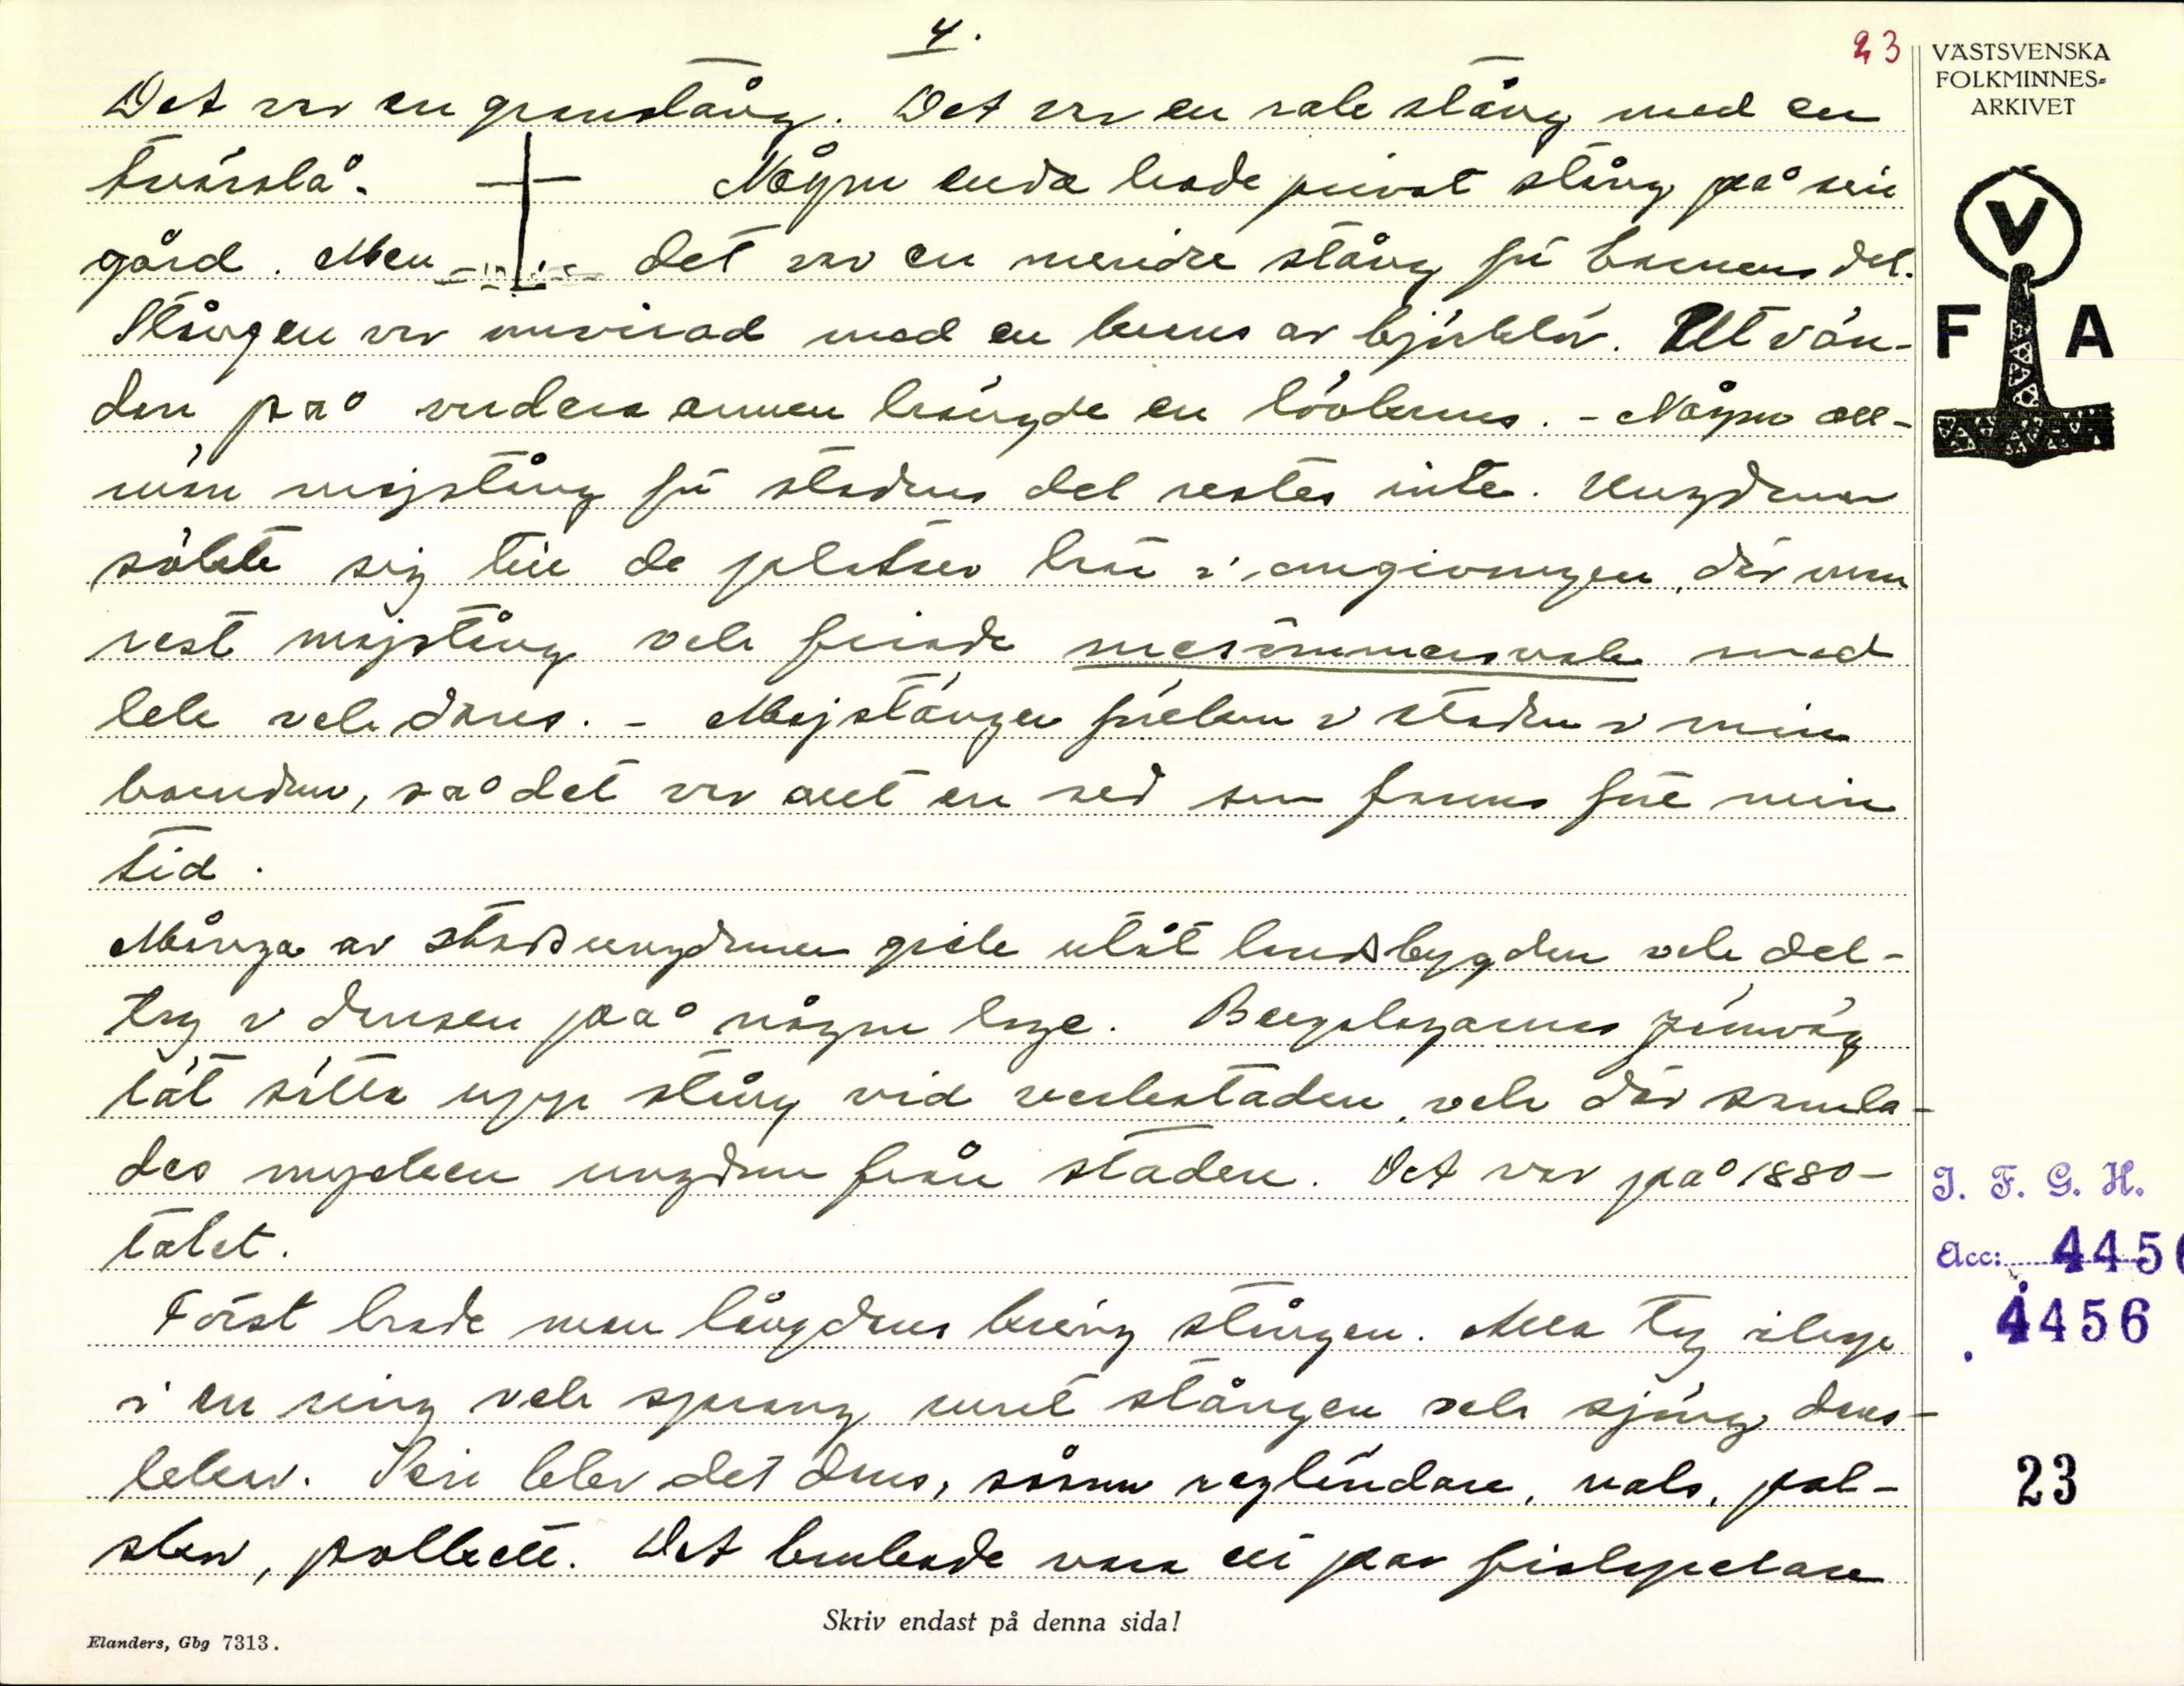 4.
23
VÄSTSVENSKA
FOLKMINNES-
ARKIVET
Det var en granstång. Det var en rak stång med en
tvärslå. Några enda hade privat stång på sin
gård. Men det var en mindre stång för barnens del.
Stången var omvirad med en krans av björklöv. Ut vän-
den på vardera armen hängde en lövkrans. - Någon all-
män majstång för stadens del restes inte. Ungdomen
sökte sig till de platser här i omgivningen, där man
rest majstång och firade mesömmersvake med
lek och dans. - Majstänger förekom i staden i min
barndom, så det var allt en sed som fanns före min
tid.
Många av stadsungdomen gick utåt landsbygden och del-
tog i dansen på någon loge. Bergslagarnas järnväg
lät sätta upp stång vid verkstaden, och där samla-
des mycken ungdom från staden. Det var på 1880-
talet.
Först hade man långdans kring stången. Alla tog ihop
i en ring och sprang runt stången och sjöng dans-
lekar. Sen blev det dans, såsom reglindare, vals, pol-
skor, polkett. Det brukade vara ett par fiolspelare
Skriv endast på denna sida!
Elanders, Gbg 7313.
V
F A
I. F. G. H.
Acc: 4456
4456
23